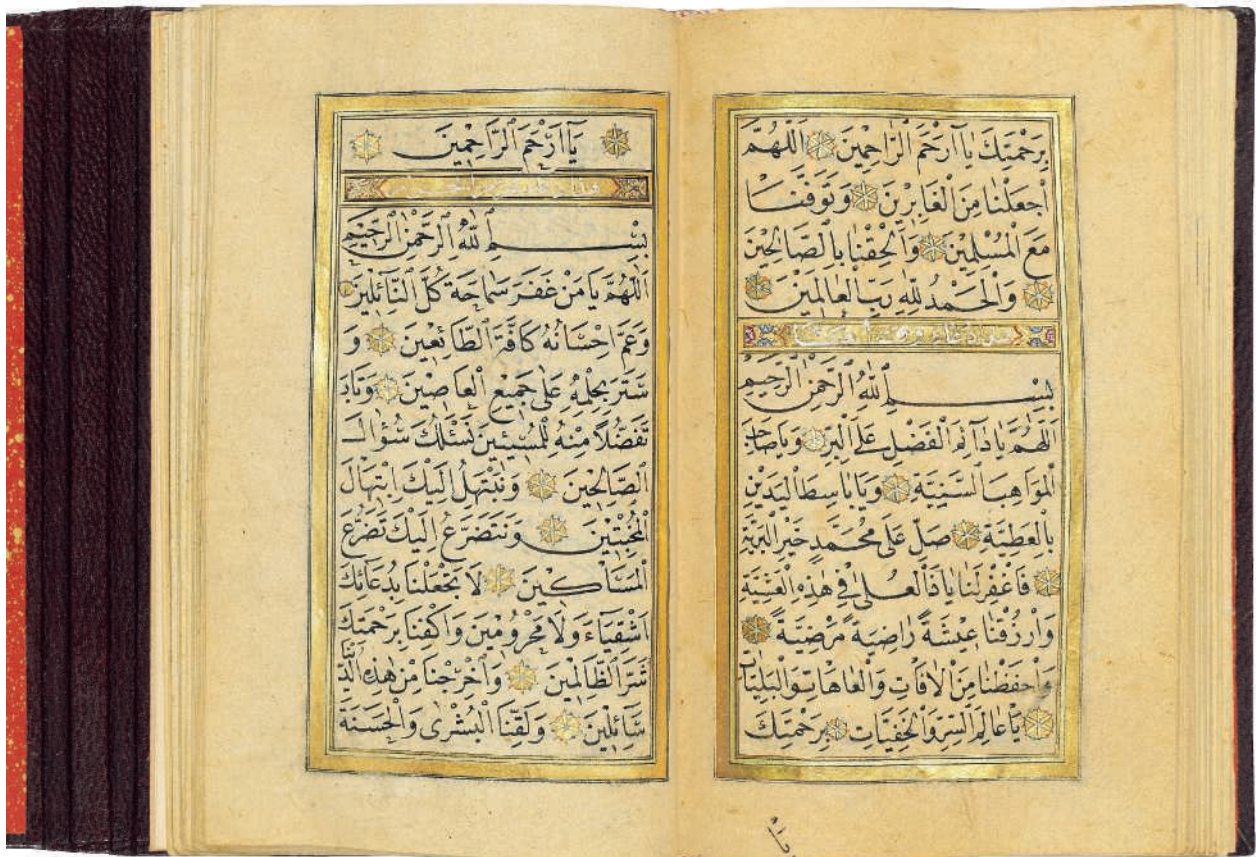 بِرَحْمَتِكَ يَا اَرْحَمَ الرَّاحِمِينَ اَللّٰهُمَّ
اجْعَلْنَا مِنَ الْغَابِرِينَ وَتَوَفَّنَا
مَعَ الْمُسْلِمِينَ وَاَلْحِقْنَا بِالصَّالِحِينَ
وَالْحَمْدُ لِلّٰهِ رَبِّ الْعَالَمِينَ
بِسْمِ اللّٰهِ الرَّحْمٰنِ الرَّحِيمِ
اَللّٰهُمَّ يَا دَآئِمَ الْفَضْلِ عَلَى الْبَرِيَّةِ وَيَا صَاحِبَ
الْمَوَاهِبِ السَّنِيَّةِ وَيَا بَاسِطَ الْيَدَيْنِ
بِالْعَطِيَّةِ صَلِّ عَلٰى مُحَمَّدٍ خَيْرِ الْبَرِيَّةِ
فَاغْفِرْ لَنَا يَا ذَا الْعُلٰى فِي هٰذِهِ الْعَشِيَّةِ
وَارْزُقْنَا عِيشَةً رَاضِيَةً مَرْضِيَّةً
وَاحْفَظْنَا مِنَ الْاٰفَاتِ وَالْعَاهَاتِ وَالْبَلِيَّاتِ
يَا عَالِمَ السِّرِّ وَالْخَفِيَّاتِ بِرَحْمَتِكَ
يَا اَرْحَمَ الرَّاحِمِينَ
بِسْمِ اللّٰهِ الرَّحْمٰنِ الرَّحِيمِ
اَللّٰهُمَّ يَا مَنْ غَفَرَ سَمَاحَةً كُلَّ
وَعَمَّ اِحْسَانُهُ كَافَّةَ الطَّائِعِينَ وَ
سَتَرَ بِحِلْمِهِ عَلٰى جَمِيعِ الْعَاصِينَ
تَفَضُّلًا مِنْهُ لِلْمُسِيئِينَ نَسْئَلُكَ سُؤَالَ
الصَّالِحِينَ وَنَبْتَهِلُ اِلَيْكَ اِبْتِهَالَ
الْمُخْبِتِينَ وَنَتَضَرَّعُ اِلَيْكَ تَضَرُّعَ
الْمَسَاكِينَ لَا تَجْعَلْنَا بِدُعَائِكَ
اَشْقِيَاءَ وَلَا مَحْرُومِينَ وَاكْفِنَا بِرَحْمَتِكَ
شَرَّ الظَّالِمِينَ وَاَخْرِجْنَا مِنْ هٰذِهِ
وَلَقِّنَا الْبُشْرٰى وَالْحَسَنَةَ